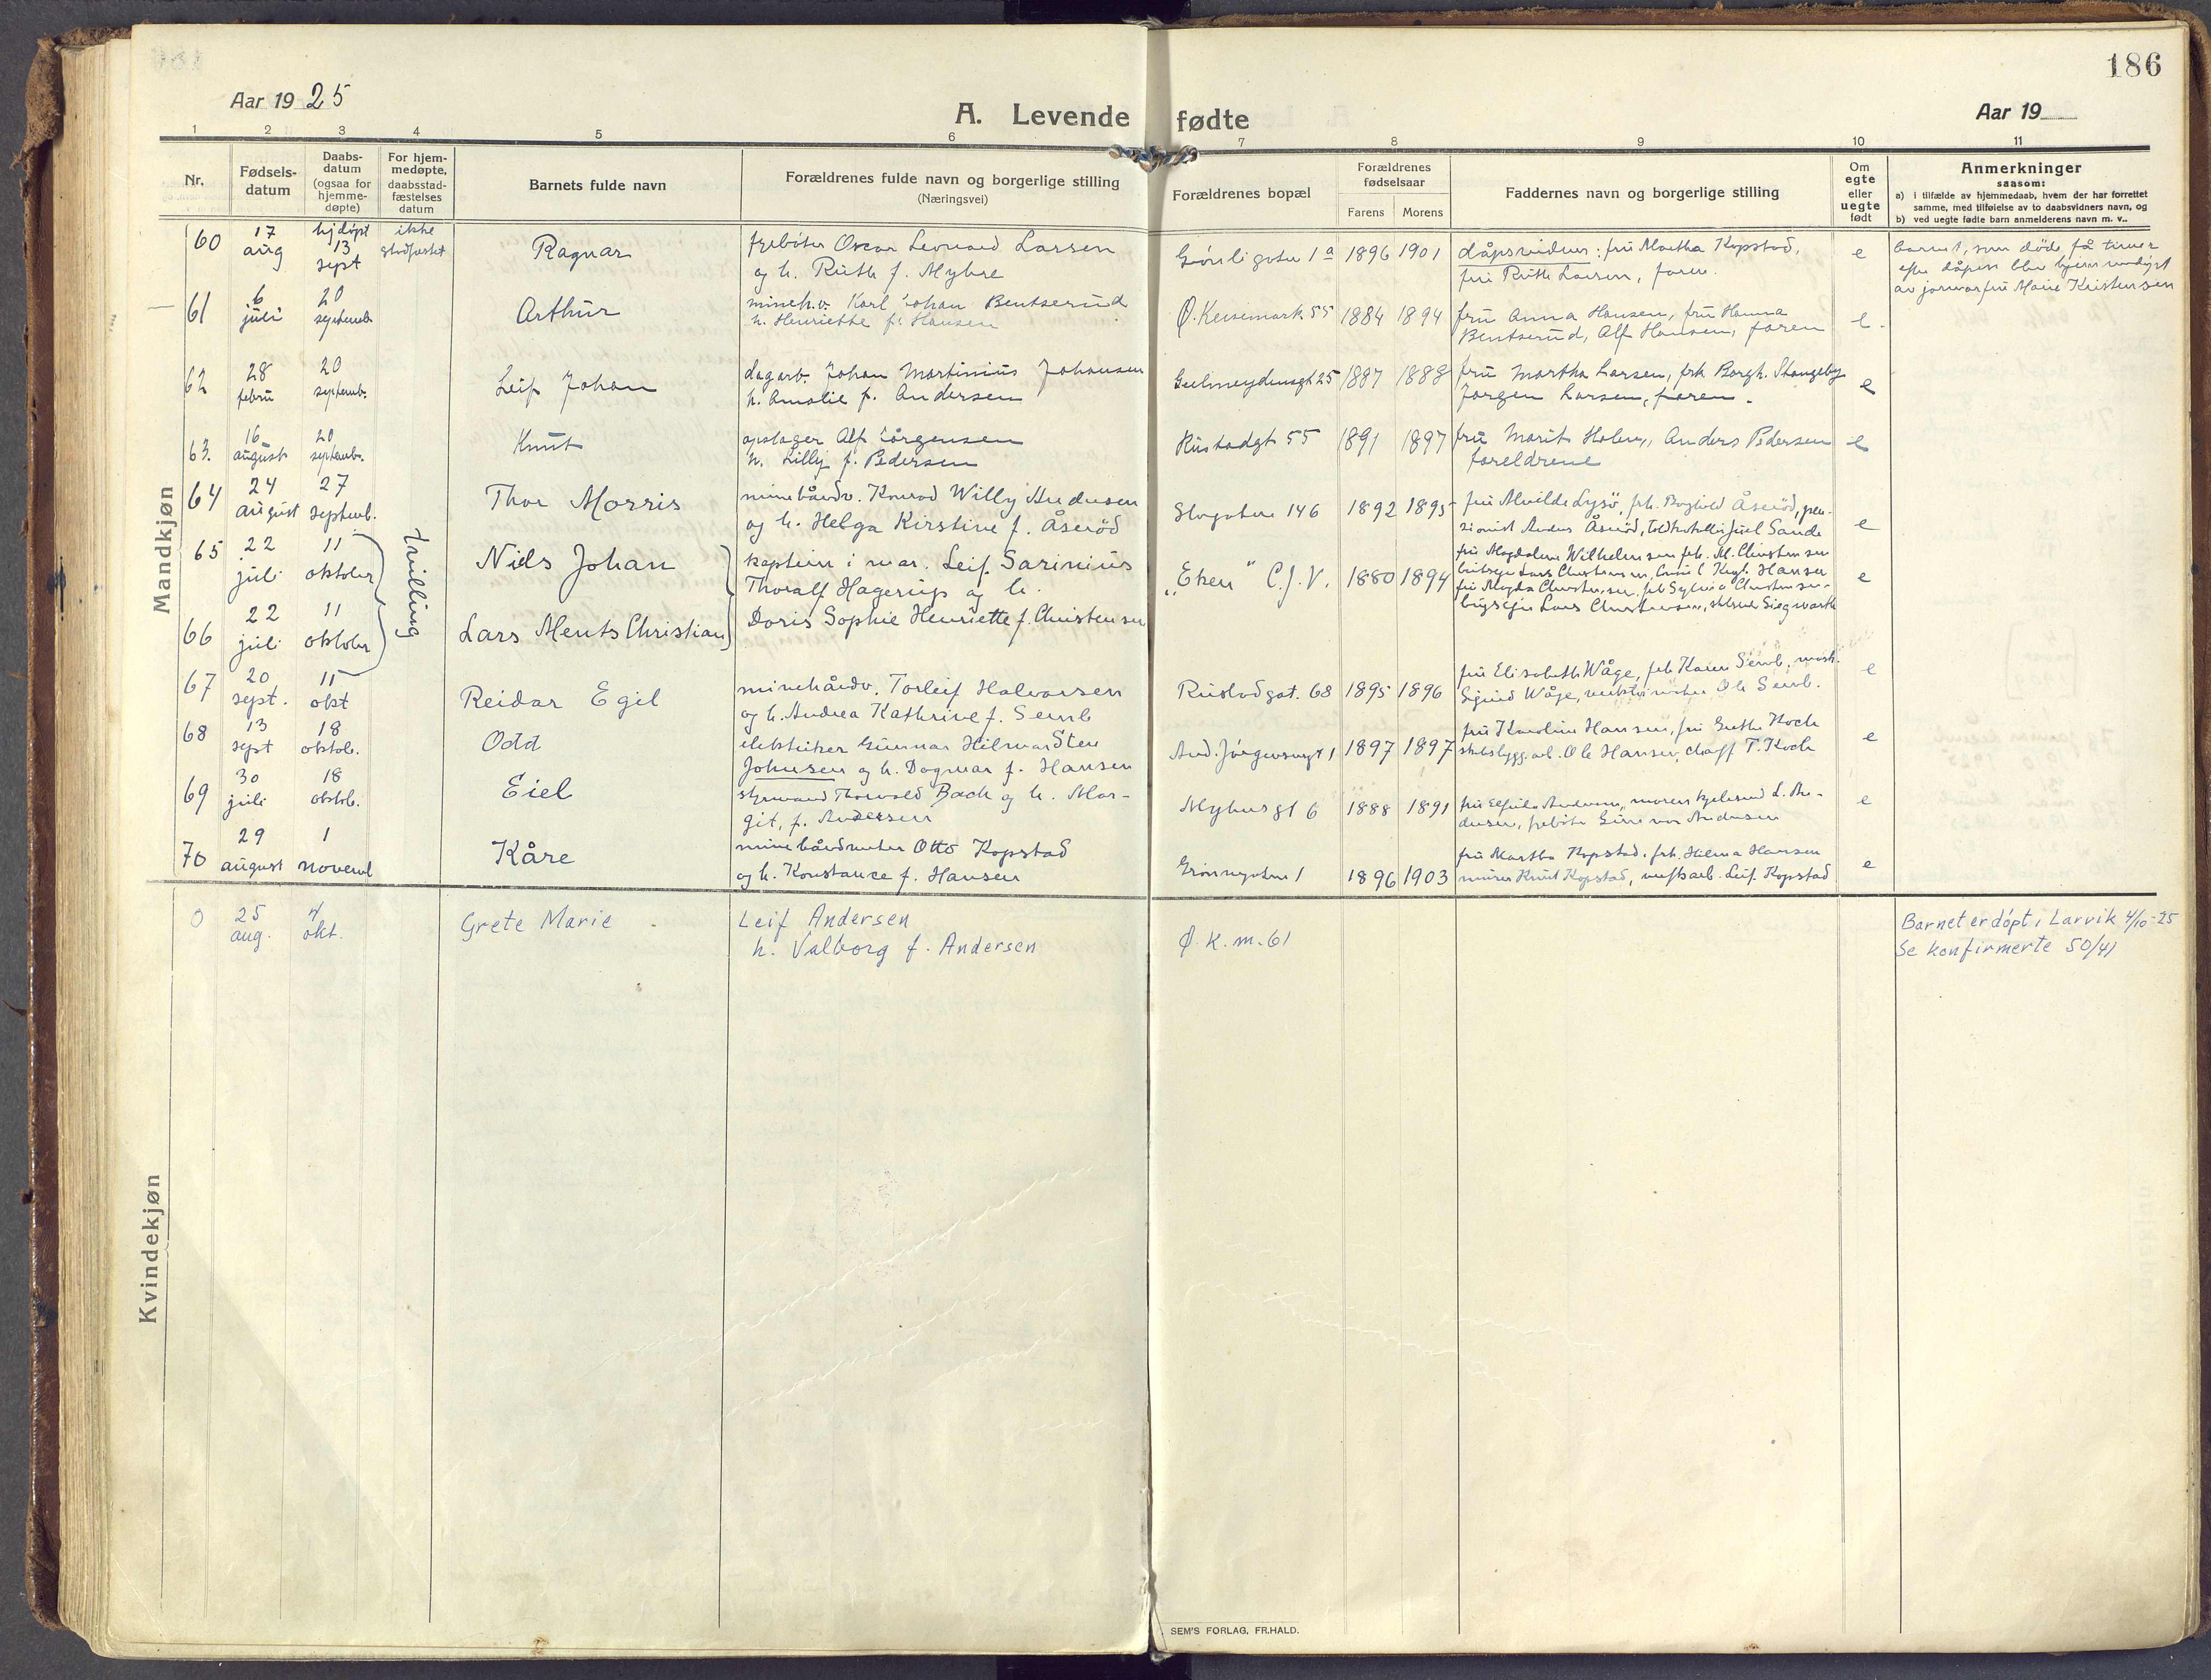 186
Aar 19 25
A. Levende fødte
Aar 19
1 2 3 4 5 6 7 8 9 10 11
Nr.
Fødsels-
datum
Daabs-
datum
(ogsaa for
hjemme-
døpte)
For hjem-
medøpte,
daabsstad-
fæstelses
datum
Barnets fulde navn
Forældrenes fulde navn og borgerlige stilling
(Næringsvei)
Forældrenes bopæl
Forældrenes
fødselsaar
Farens Morens
Faddernes navn og borgerlige stilling
Om
egte
eller
uegte
født
Anmerkninger
saasom:
a) i tilfælde av hjemmedaab, hvem der har forrettet
samme, med tilføielse av to daabsvidners navn, og
b) ved uegte fødte barn anmelderens navn m. v..
Mandkjøn
60
17
aug
hjdøpt
13
sept
ikke
stadfæstet
Ragnar
fyrbøter Oscar Leonard Larsen
og h. Ruth f. Myhre
Grönligaten 1 a
1896 1901
dåpsvidner: fru Martha Kopstad,
fru Ruth Larsen, faren.
e
barnet, som døde få timer
efter dåpen blev hjemmedøpt
av jormorfru Marie Kristensen
61
6
juli
20
septemb.
Arthur
mineh.v. Karl Johan Bentserud
h. Henriette f. Hansen
Ø. Keisemark 55
1884 1894
fru Anna Hansen, fru Hanna
Bentserud, Alf Hansen, faren
e.
62
28
febru
20
septemb.
Leif Johan
dagarb. Johan Martinius Johansen
h. Amalie f. Andersen
1887 1888
fru Martha Larsen, frk Borgh. Stangeby
Jørgen Larsen, faren.
e
63.
16
august
20
septemb.
Knut
opslager Alf Jörgensen
h. Lilly f. Pedersen
Rustadgt 55
1891 1897
fru Marit Holm, Anders Pedersen
foreldrene
e
64
24
august
27
septemb.
Thor Morris
minebårdv. Konrad Willy Andersen
og h. Helga Kirstine f. Åseröd
Slagatene 146
1892 1895
fru Alvilde Lysö, frk. Borghild Åseröd, pen-
sionist Anders Åseröd, Juel Sande
e
65
22
juli
11
oktober
Niels Johan
kaptein i mar. Leif Sarinius
Thoralf Hagerup og h.
Doris Sophie Henriette f. Christensen
„Eken" C.J.V.
1880 1894
fru Magdalene Wilhelmsen frk. M. Christensen
Lars Christensen, Hansen
fru Magda Christensen, frk Sylvia Christensen
Lars Christensen,
e
tvilling
66
22
juli
11
oktober
Lars Ments Christian
67
20
sept.
11
okt
Reidar Egil
minehårdv. Torleif Halvorsen
og h. Andrea Kathrine f. Semb
Rustadgat. 68
1895 1896
fru Elisabeth Wåge, frk Karen Semb, mask.
Sigurd Wåge, Ole Semb.
e
68
13
sept
18
oktob.
Odd
elektriker Gunnar Hilmar Sten
Johnsen og h. Dagmar f. Hansen
And. Jörgensengt 1
1897 1897
fru Karoline Hansen, fru Grethe Koch
skibsbygg.arb. Ole Hansen, T. Koch
e
69
30
juli
18
oktob.
Eiel
styrmand Thorvald Bach og h. Mar-
git, f. Andersen
Myhresgt 6
1888 1891
fru Elfrida Andersen, moren L. An-
dersen, fyrbøter Andersen
e
70
29
august
1
novemb
Kåre
minebårdruter Otto Kopstad
og h. Konstance f. Hansen
Grönnegaten 1
1896 1903
fru Martha Kopstad, frk. Hilma Hansen
murer Knut Kopstad, verftsarb. Leif Kopstad
e
Kvindekjøn
0
25
aug.
4/
okt.
Grete Marie
Leif Andersen
h. Valborg f. Andersen
Ø. K. m. 61
Barnet er døpt i Larvik 4/10-25
Se konfirmerte 50/41
SEM'S FORLAG, FR.HALD.